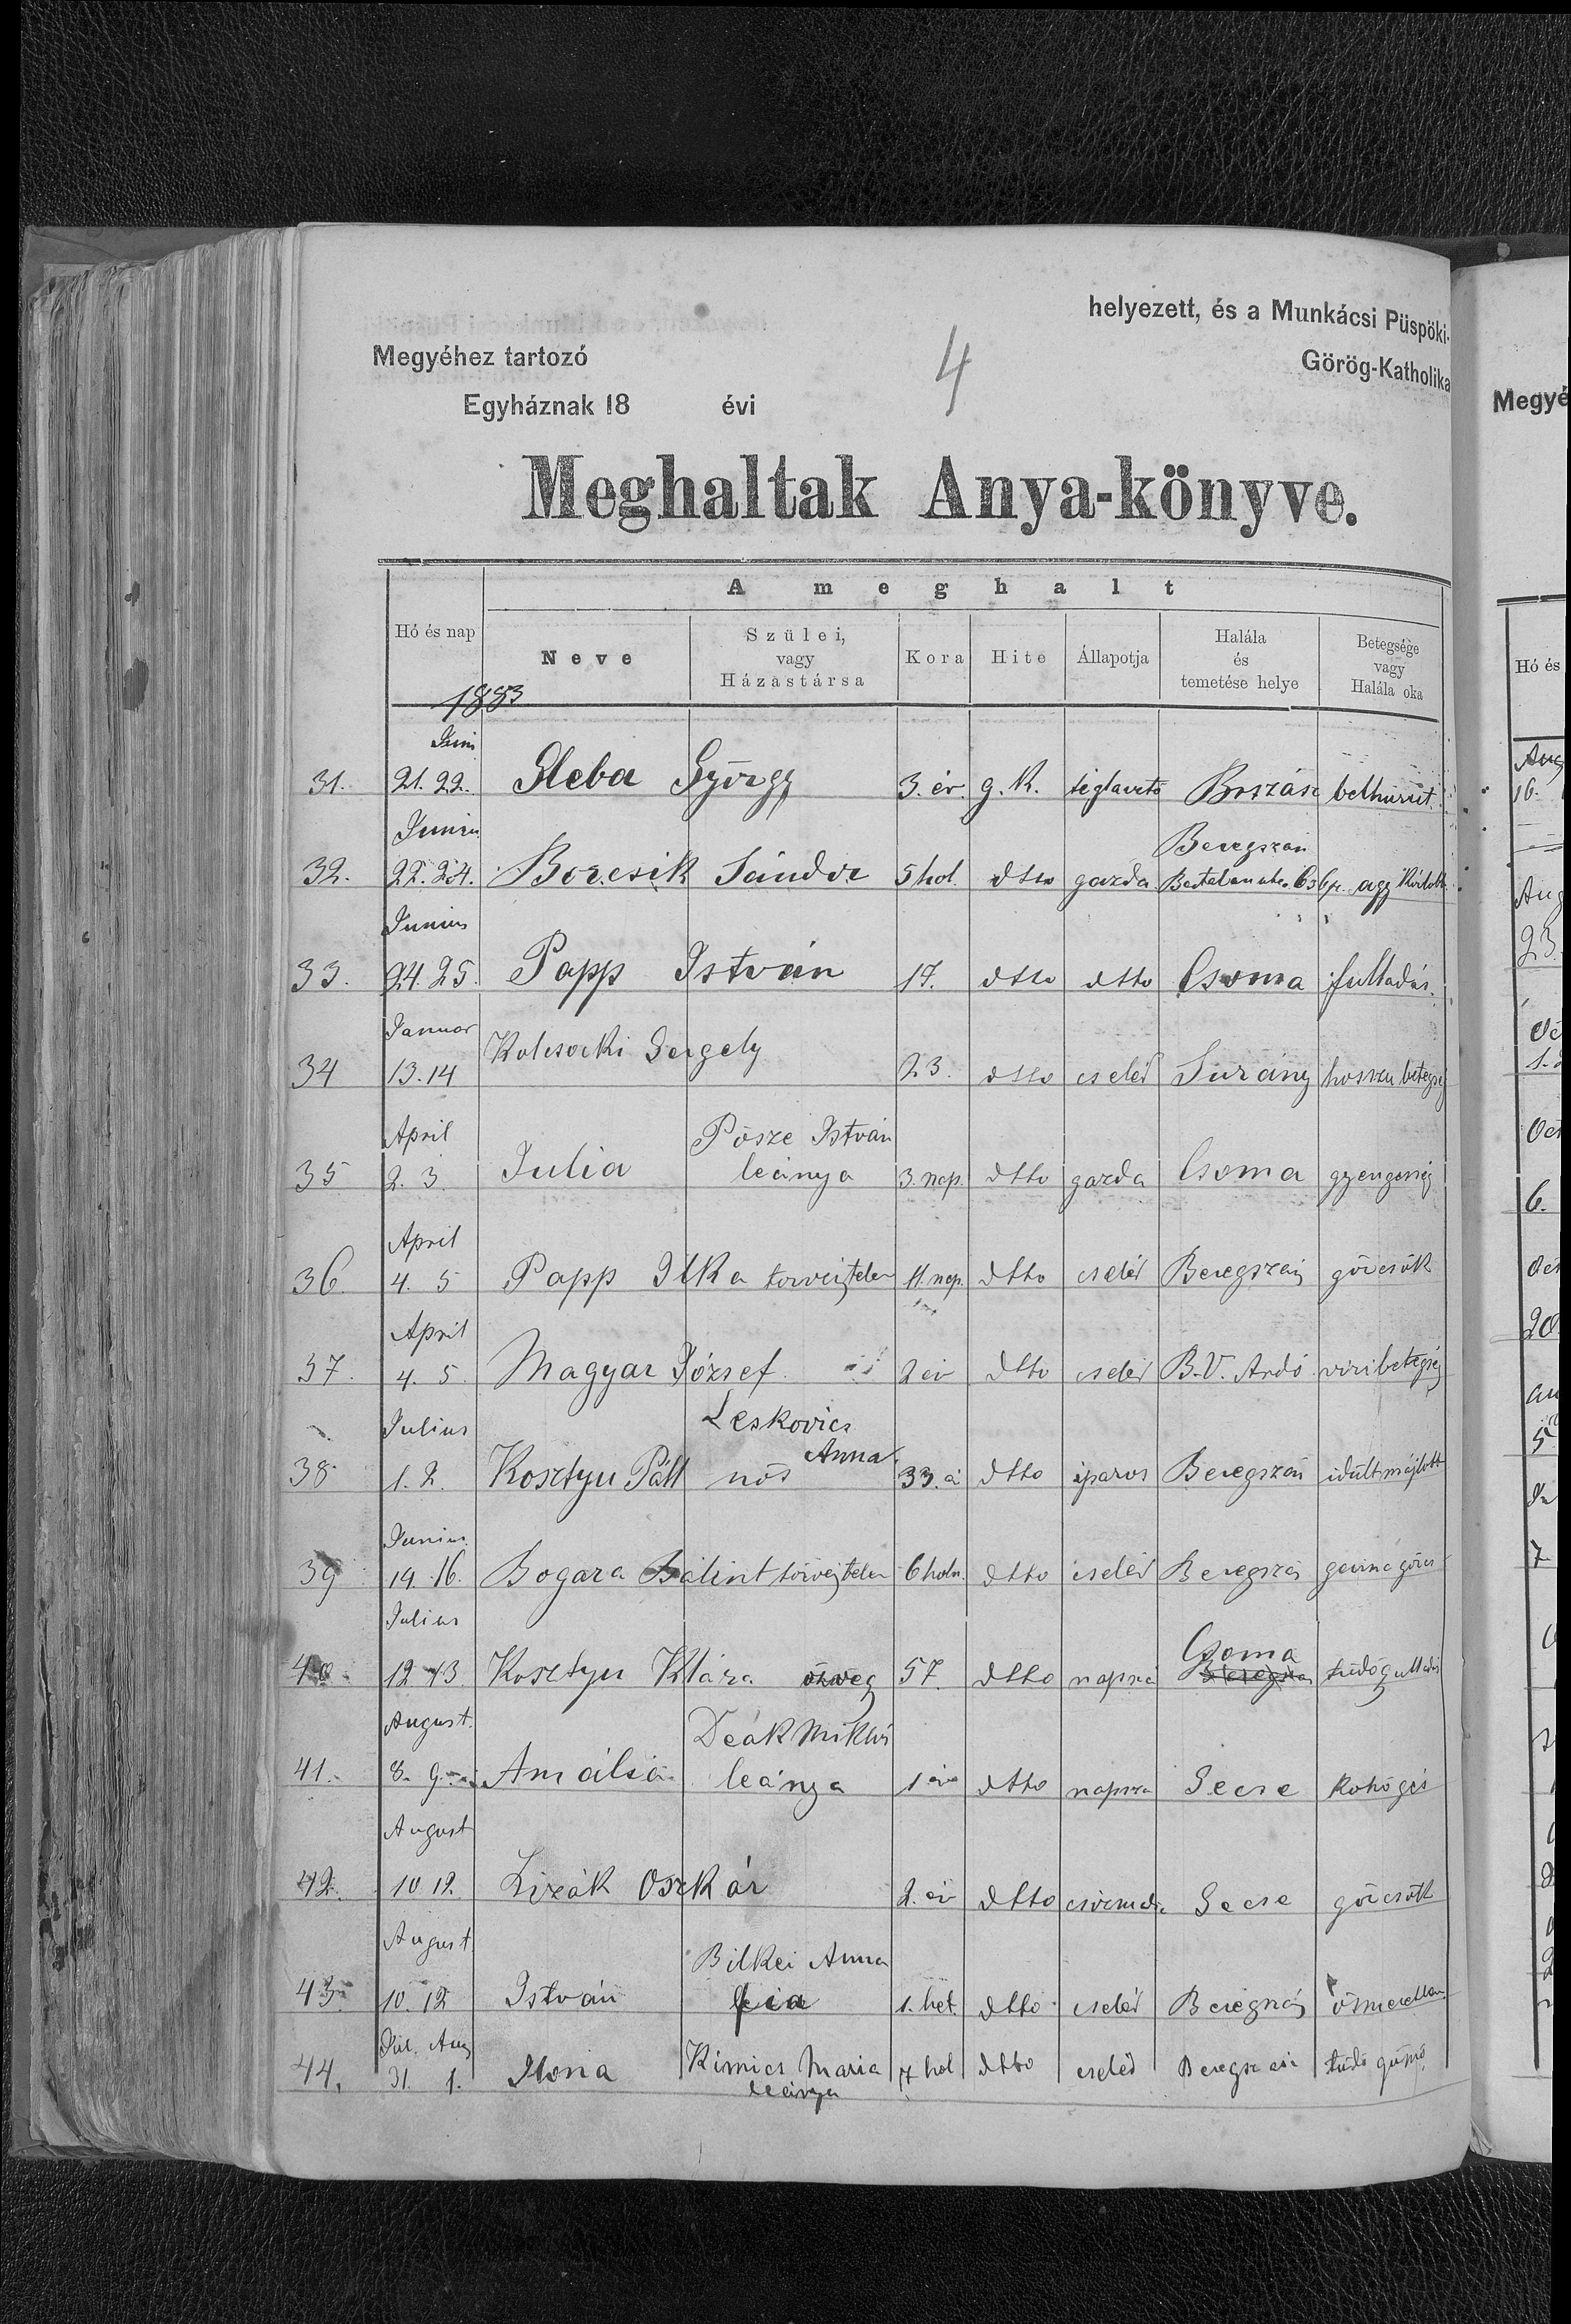 helyezett, és a Munkácsi Püspöki-
Megyéhez tartozó
4
Görög-Katholika
Egyháznak 18 évi
Meghaltak Anya-könyve.
A meghalt
Hó és nap
Neve
Szülei,
vagy
Házastársa
Kora
Hite
Állapotja
Halála
és
temetése helye
Betegsége
vagy
Halála oka
1883
Juni
31. 21. 22. Gleba György 3. év. g. K. téglavető belhurut
Junius
Beregszász
32. 22. 24. Borcsik Sándor 5 hol. dtto gazda agy
Junius
33. 24. 25. Papp István 17. dtto dtto Csoma fulladás.
Januar
34 13. 14 Gergely 23. dtto cseléd Surány hosszu betegség
April
Pósze István
35 2. 3. Julia leánya 3. nap. dtto gazda Csoma gyengeség
April
36. 4. 5 Papp Ilka törvénytelen 11. nap. dtto cseléd Beregszász görcsök
April
37. 4. 5 Magyar József 2 év dtto cseléd B.V. Ardó betegség
Julius
Leskovics
Anna
38 1. 2. Kosztyu Pált nős 33. é dtto iparos Beregszász idült
Junius
39 14. 16. Bogara Bálint törvénytelen 6 holn. dtto cseléd Beregszász görcs
Julius
Csoma
40. 12 13. Kosztyu Klára özveg 57. dtto napszá
August.
Deák Miklós
41. 8. 9. Amália leánya 1 év dtto napsza Gecse Kohögés
August
42. 10 12. Lizák Oszkár 2. év dtto Gecse görcsök
August
Bilkei Anna
43. 10. 12 István fia 1. hét. dtto cseléd Beregszász
Jul. Aug
44. 31. 1. Ilona Kimics Maria 7 hol dtto cseléd Beregszász tüdő gümő
leánya
Megyé
Hó és
Aug
16.
Aug
23.
Oct
6.
20
5
7